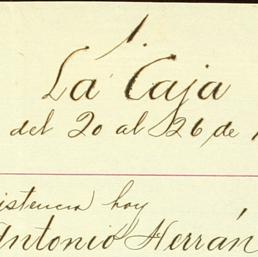 1.
La Caja
del 20 al 26 de
istencia hoy
Antonio Herrán